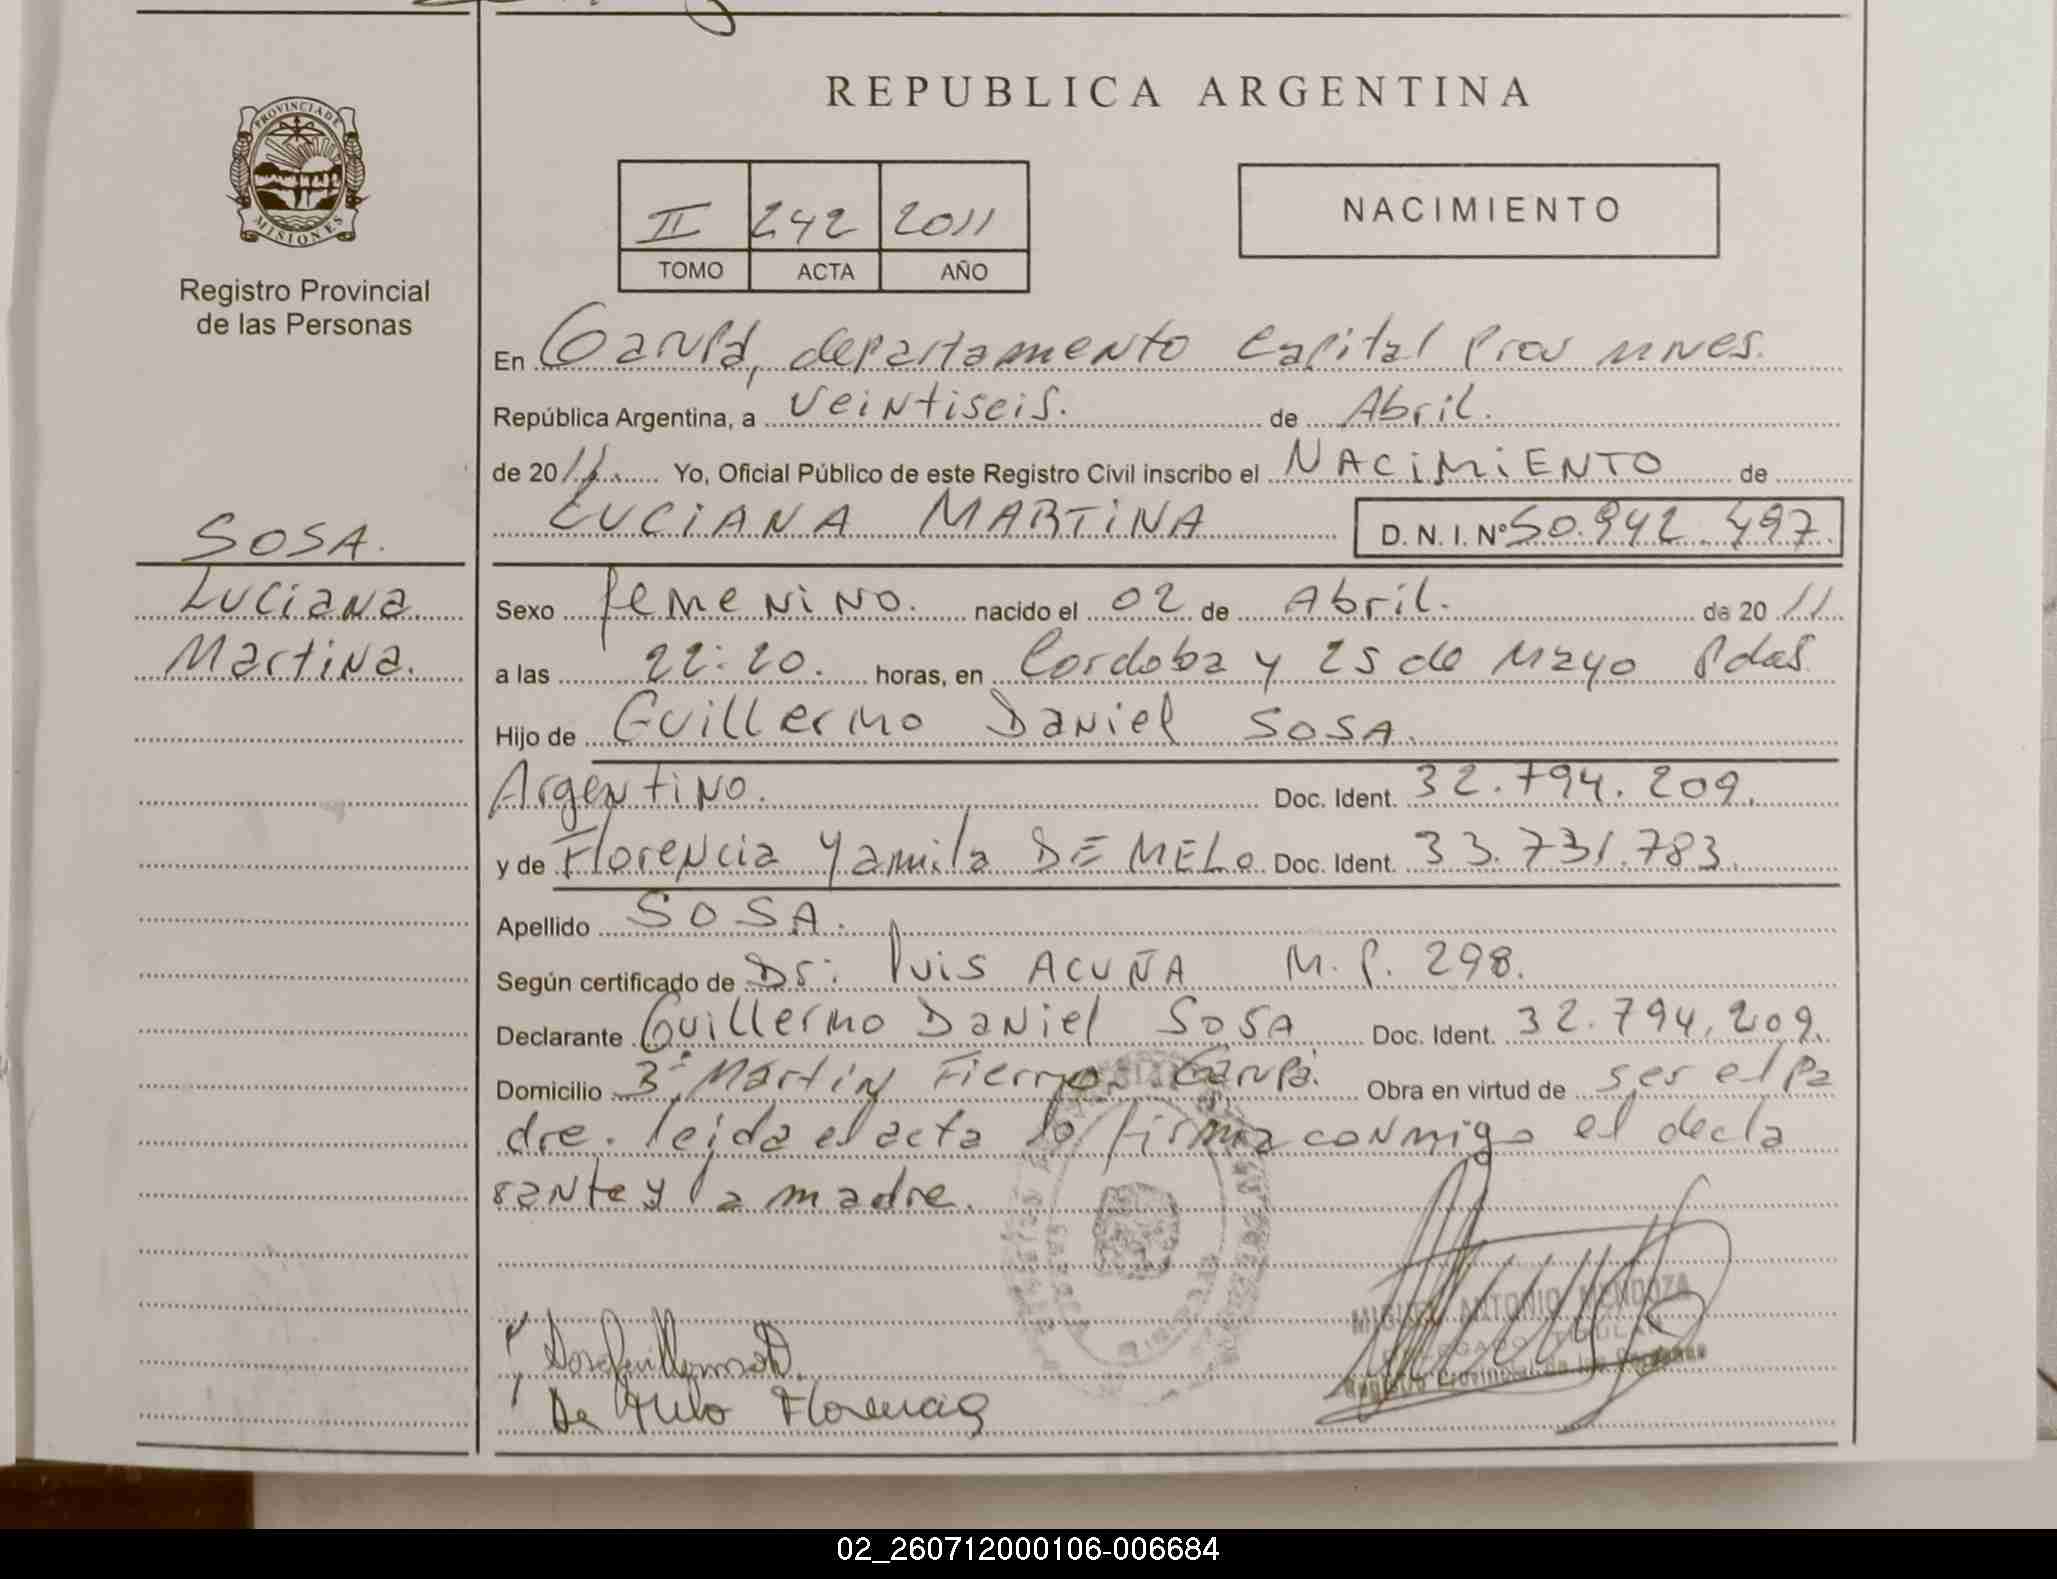 REPUBLICA ARGENTINA
PROVINCIA DE
MISIONES
Registro Provincial
de las Personas
II 242 2011
TOMO ACTA AÑO
NACIMIENTO
En Garupá, departamento Capital Prov
República Argentina, a veintiseis. de Abril.
de 2011 Yo, Oficial Público de este Registro Civil inscribo el NACIMIENTO de
LUCIANA MARTINA D. N. I. Nº 50.942.497.
SOSA.
Luciana
Martina.
Sexo femenino. nacido el 02 de Abril. de 2011.
a las 22:20. horas, en Cordoba y 25 de Mayo Pdas
Hijo de Guillermo Daniel SOSA.
Argentino. Doc. Ident. 32.794.209.
y de Florencia Yamila DE MELO Doc. Ident. 33.731.783.
Apellido SOSA.
Según certificado de Dr: Luis ACUÑA M.P. 298.
Declarante Guillermo Daniel SOSA Doc. Ident. 32.794.209.
Domicilio 3º Martin Fierro. Garupá. Obra en virtud de ser el pa
dre. leida el acta lo firma conmigo el decla
rante y la madre.
MIGUEL ANTONIO MENDOZA
DELEGADO TITULAR
Registro Provincial de las Personas
De Melo Florencia
02_260712000106-006684